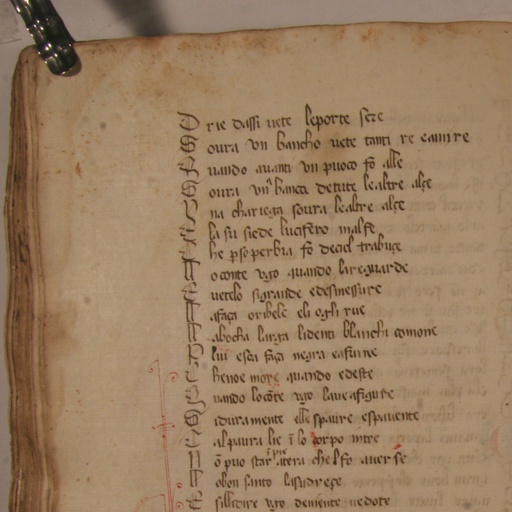 O rie dassi vete leporte seze
S oura vn bancho vete tanti re eamire
Q uando auanti vn puoco fo alle
S oura vn bancu de tute lealtre alçe
V na chariega soura lealtre alçe
E la su siede lucifero malfe
C he p soperbia fo deciel trabuçe
N o conte vgo quando lareguarde
E vetelo sigrande edesmessure
L afaça oribele eli ogli rue
L abocha larga lidenti blanchi comone
P lui esea faça negra eafurne
C henoe more quando edeste
Q uando locote vgo laueafigure
S iduramente elle spaure espauente
C alpaura lie i lo corpo intre
N o puo star atera chelfo auerse
N obon santo lasudreçe
E silicire vgo deniente vedote